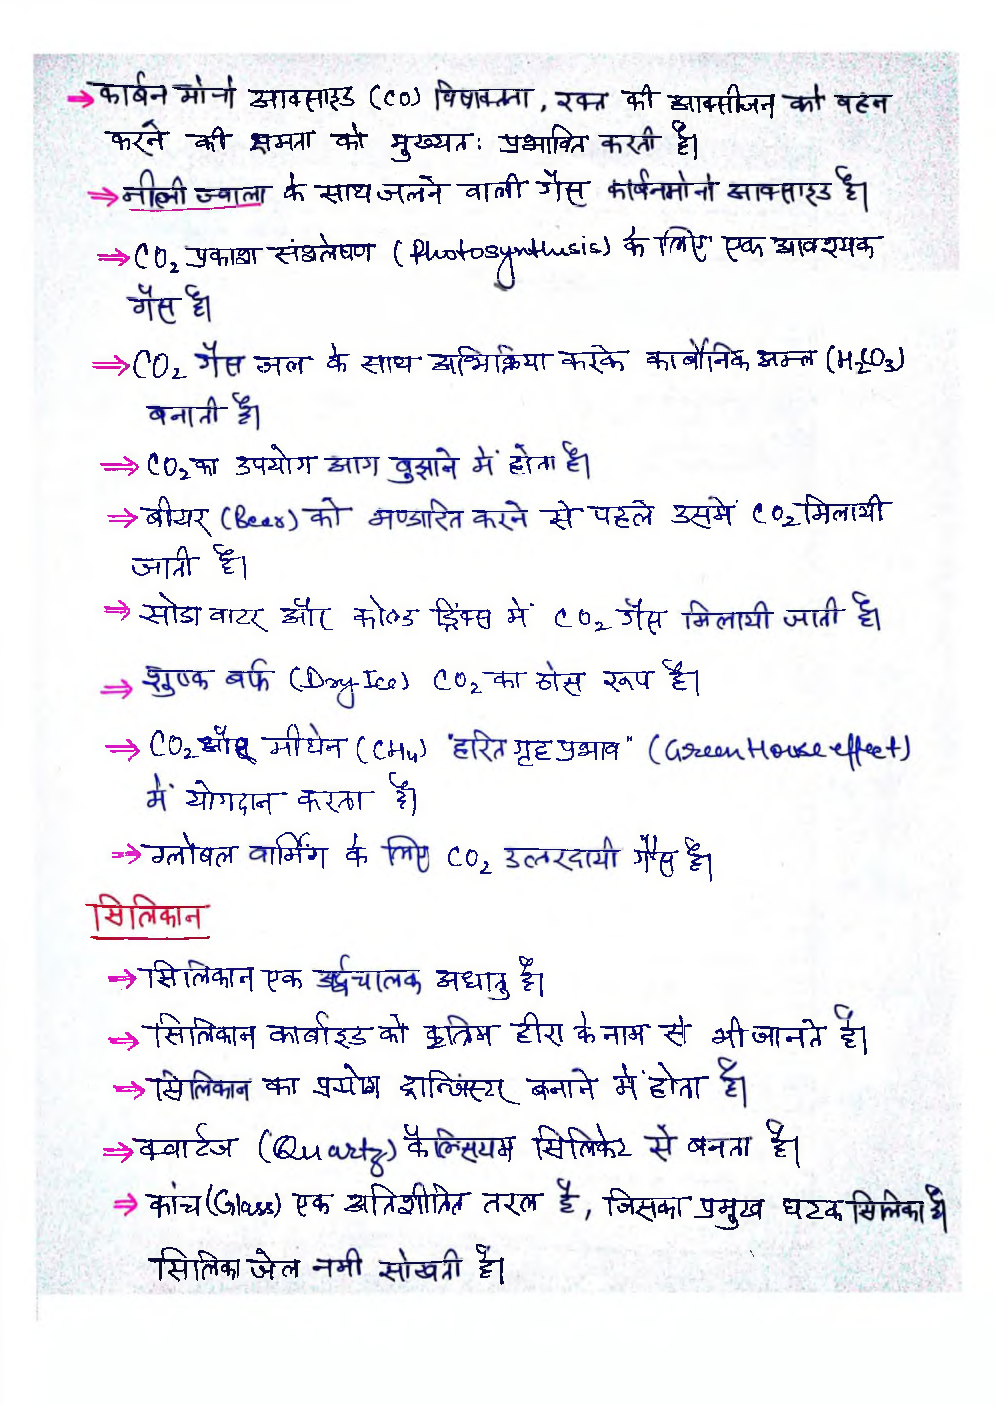 ⇒ कार्बन मोनो आक्साइड (CO) विषाक्तता, रक्त की आक्सीजन को वहन
करने की क्षमता को मुख्यतः प्रभावित करती है।
⇒ नीली ज्वाला के साथ जलने वाली गैस कार्बनमोनो आक्साइड है।
⇒ CO₂ प्रकाश संश्लेषण (Photosynthesis) के लिए एक आवश्यक
गैस है।
⇒ CO₂ गैस जल के साथ अभिक्रिया करके कार्बोनिक अम्ल (H₂CO₃)
बनाती है।
⇒ CO₂ का उपयोग आग बुझाने में होता है।
⇒ बीयर (Bear) को भण्डारित करने से पहले उसमें CO₂ मिलायी
जाती है।
⇒ सोडा वाटर और कोल्ड ड्रिंक्स में CO₂ गैस मिलायी जाती है।
⇒ शुष्क बर्फ (Dry Ice) CO₂ का ठोस रूप है।
⇒ CO₂ और मीथेन (CH₄) "हरित गृह प्रभाव" (Green House effect)
में योगदान करता है।
⇒ ग्लोबल वार्मिंग के लिए CO₂ उत्तरदायी गैस है।
सिलिकान
⇒ सिलिकान एक अर्द्धचालक अधातु है।
⇒ सिलिकान कार्बाइड को कृत्रिम हीरा के नाम से भी जानते है।
⇒ सिलिकान का प्रयोग ट्रान्जिस्टर बनाने में होता है।
⇒ क्वार्टज (Quartz) कैल्सियम सिलिकेट से बनता है।
⇒ कांच (Glass) एक अतिशीतित तरल है, जिसका प्रमुख घटक सिलिका है।
सिलिका जेल नमी सोखती है।